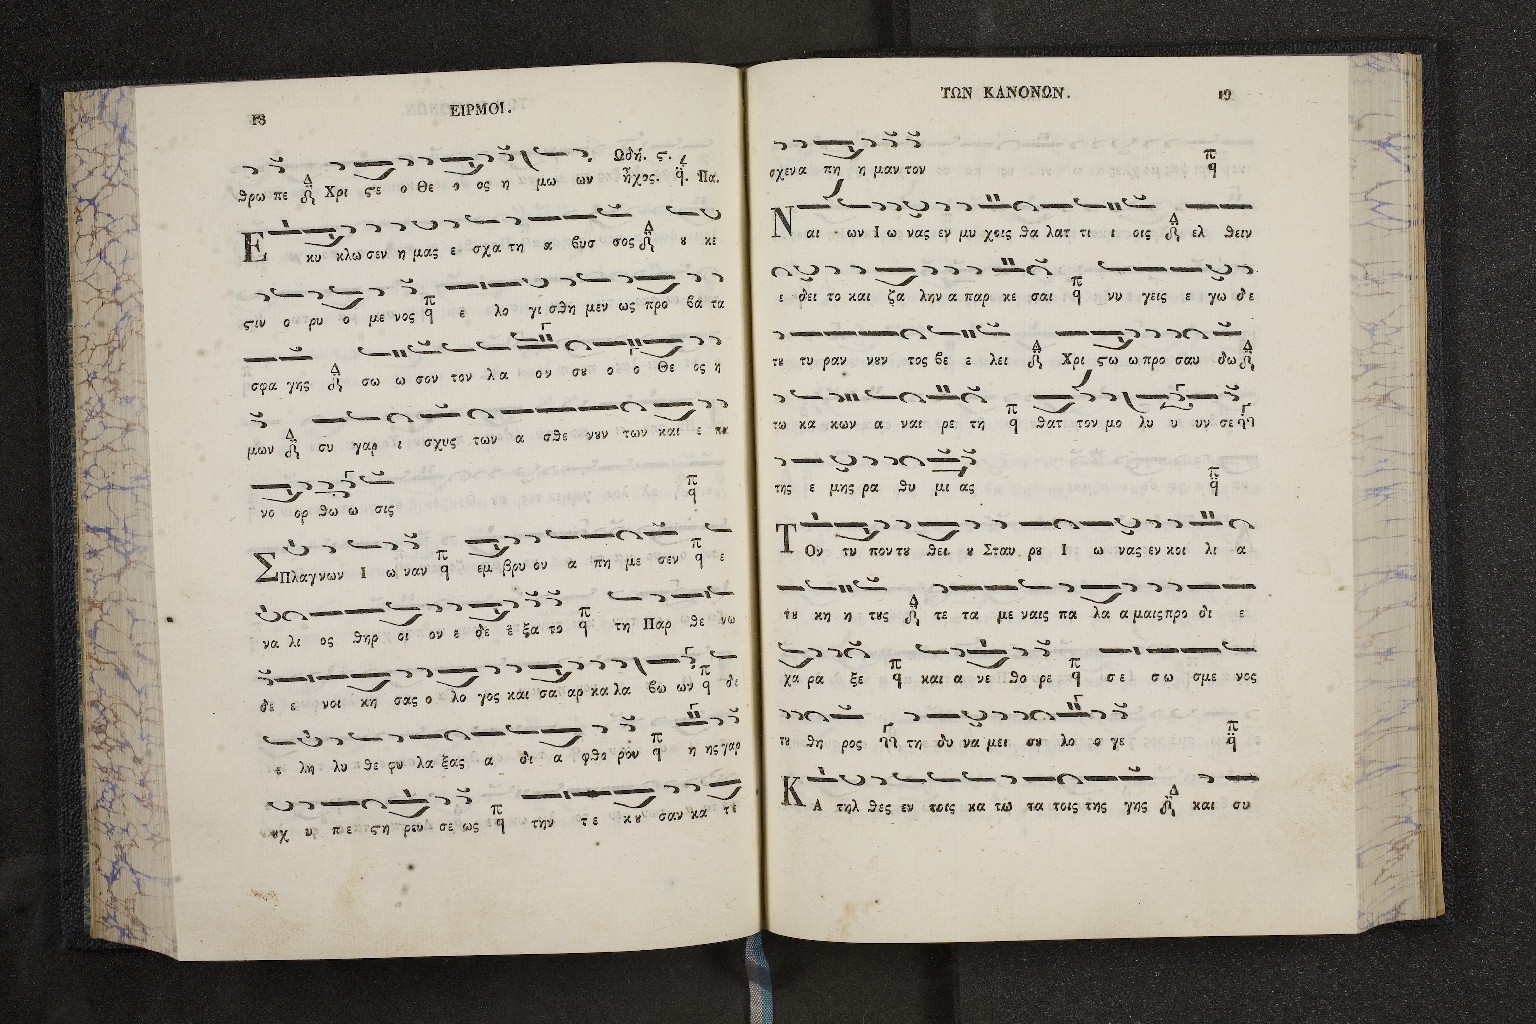 18
ΕΙΡΜΟΙ.
θρω πε Χρι ϛε ο Θε ο ος η μω ων Ωδή. ϛ. ἦχος. Πα.
Ε κυ κλω σεν η μας ε σχα τη α βυσ σος ȣ κε
ϛιν ο ρυ ο με νος ε λο γι σθη μεν ως προ βα τα
σφα γης σω ω σον τον λα ον σȣ ο ο Θε ος η
μων συ γαρ ι σχυς των α σθε νȣν των και ε πα
νο ορ θω ω σις
ΣΠλαγνων Ι ω ναν εμ βρυ ον α πη με σεν ε
να λι ος θηρ οι ον ε δε ε ξα το τη Παρ θε νω
δε ε νοι κη σας ο λο γος και σα αρ κα λα βω ων δι
ε λη λυ θε φυ λα ξας α δι α φθο ρον η ης γαρ
ȣχ υ πε ϛη ρευ σε ως την τε κȣ σαν κα τε
ΤΩΝ ΚΑΝΟΝΩΝ.
19
σχενα πη η μαν τον
Ναι ων Ι ω νας εν μυ χοις θα λατ τι ι οις ελ θειν
ε δει το και ζα λην α παρ κε σαι νυ γεις ε γω δε
τȣ τυ ραν νȣν τος βε ε λει Χρι ϛω ω προ σαυ δω
τω κα κων α ναι ρε τη θατ τον μο λυ υ υν σε
της ε μης ρα θυ μι ας
ΤΟν τυ πον τȣ θει ȣ Σταυ ρȣ Ι ω νας εν κοι λι α
τȣ κη η τȣς τε τα με ναις πα λα α μαις προ δι ε
χα ρα ξε και α νε βο ρε σ ε σω σμε νος
τȣ θη ρος τη δυ να μει σȣ λο ο γε
ΚΑ τηλ θες εν τοις κα τω τα τοις της γης και συ